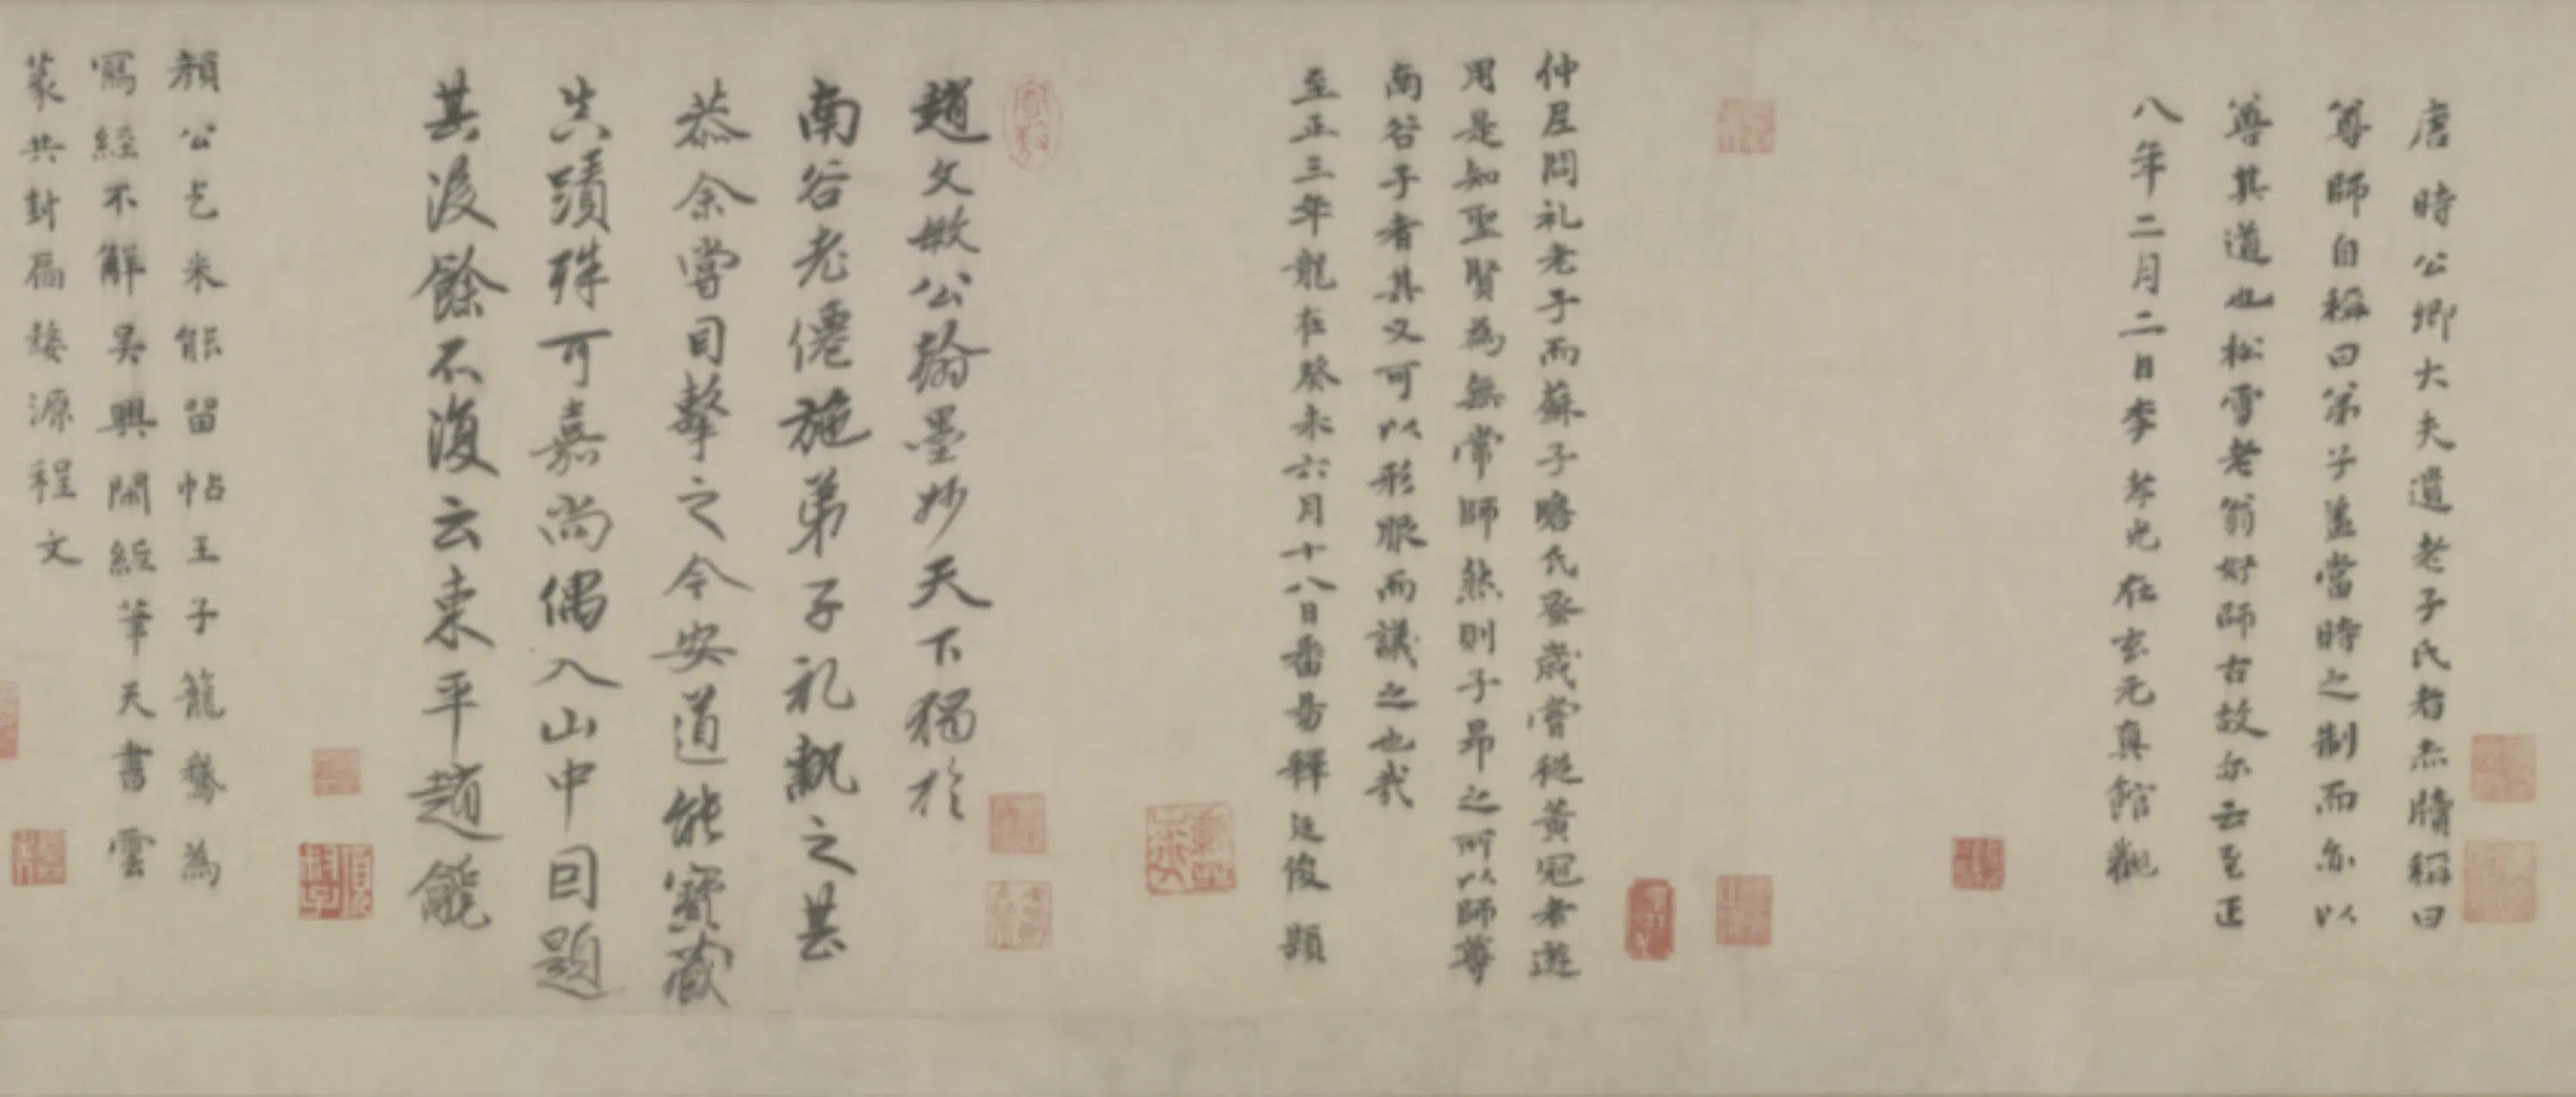 唐時公卿大夫遺老子氏者杰牘稱曰
尊師自稱曰弟子盖當時之制而亦以
尊其道也松雪老翁好師古故尒云至正
八年二月二日李孝光在玄元真館觀
仲尼問礼老子而蘇子瞻氏登歲嘗從黃冠者遊
用是知聖賢為無常師然則子昂之所以師尊
南谷子者其又可以形服而議之也哉
至正三年龍在癸未六月十八日番易釋廷俊題
趙文敏公翰墨妙天下獨於
南谷老僊施弟子礼執之甚
恭余嘗目擊之今安道能寶藏
其蹟殊可嘉尚偶入山中囙題
其後餘不復云東平趙
顏公乞米能留帖王子籠鵝為
寫經不解吳興閑經筆天書雲
篆共封扃婺源程文